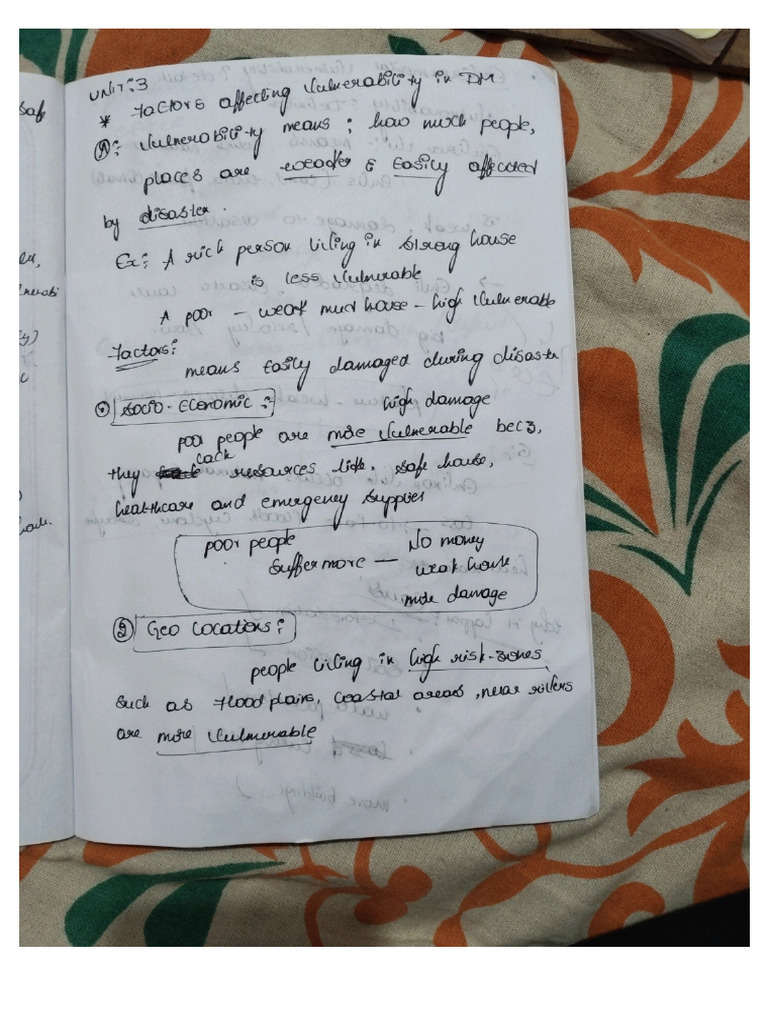 UNIT:3
* Factors affecting Vulnerability in DM
(A): Vulnerability means : how much people,
places are weader & Easily affected
by disaster.
Ex: A rich person living in strong house
is less Vulnerable
A poor - weak mud house - high Vulnerable
Factors:
means Easily damaged during disaster
① Socio-Economic : high damage
poor people are more Vulnerable becz,
they lack resources like, safe house,
healthcare and emergency supplies
poor people No money
suffer more — weak house
more damage
② Geo Locations:
people living in high risk-zones,
such as flood plains, coastal areas, near rivers
are more Vulnerable